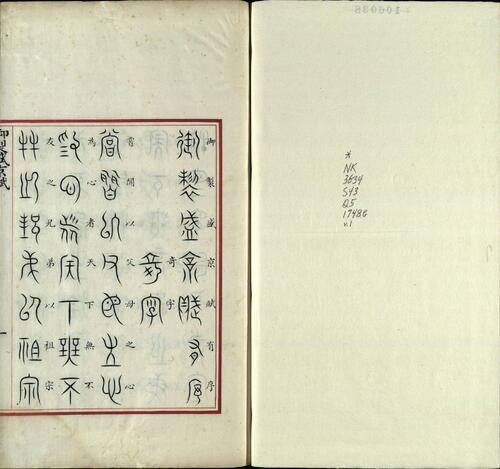 御製盛京賦有序
奇字
嘗聞以父母之心
為心者天下無不
友之兄弟以祖宗
*
NK
3634
S43
Q5
1748c
v.1